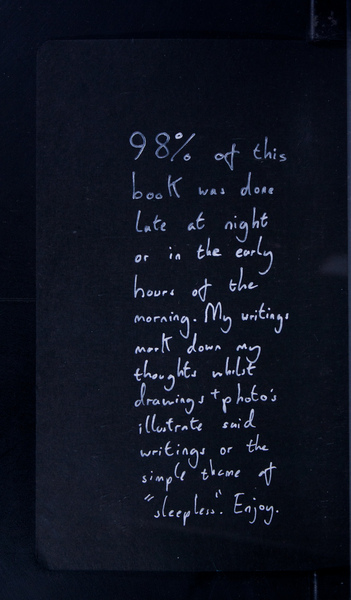 98% of this
book was done
late at night
or in the early
hours of the
morning. My writings
mark down my
thoughts whilst
drawings + photo's
illustrate said
writings or the
simple theme of
"sleepless". Enjoy.